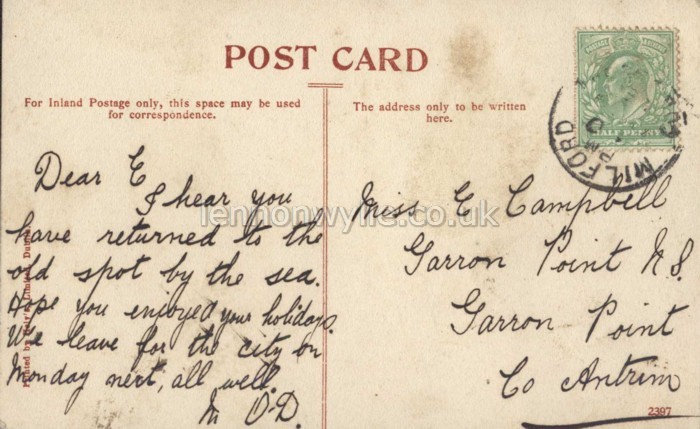 POST CARD
For Inland Postage only, this space may be used
for correspondence.
The address only to be written
here.
HALF PENNY
MILFORD
Dear E
I hear you
have returned to the
old spot by the sea.
Hope you enjoyed your holidays.
We leave for the city on
Monday next, all well.
M O'D.
Miss E Campbell
Garron Point N.S.
Garron Point
Co Antrim
2397
Printed by
Limited, Dublin
lennonwylie.co.uk